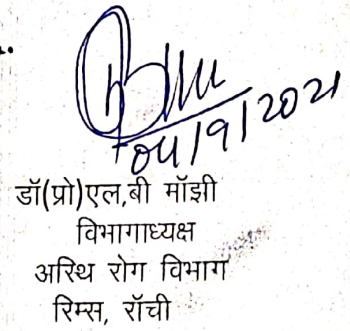 04/9/2021
डॉ(प्रो)एल,बी मॉझी
विभागाध्यक्ष
अस्थि रोग विभाग
रिम्स, रॉची